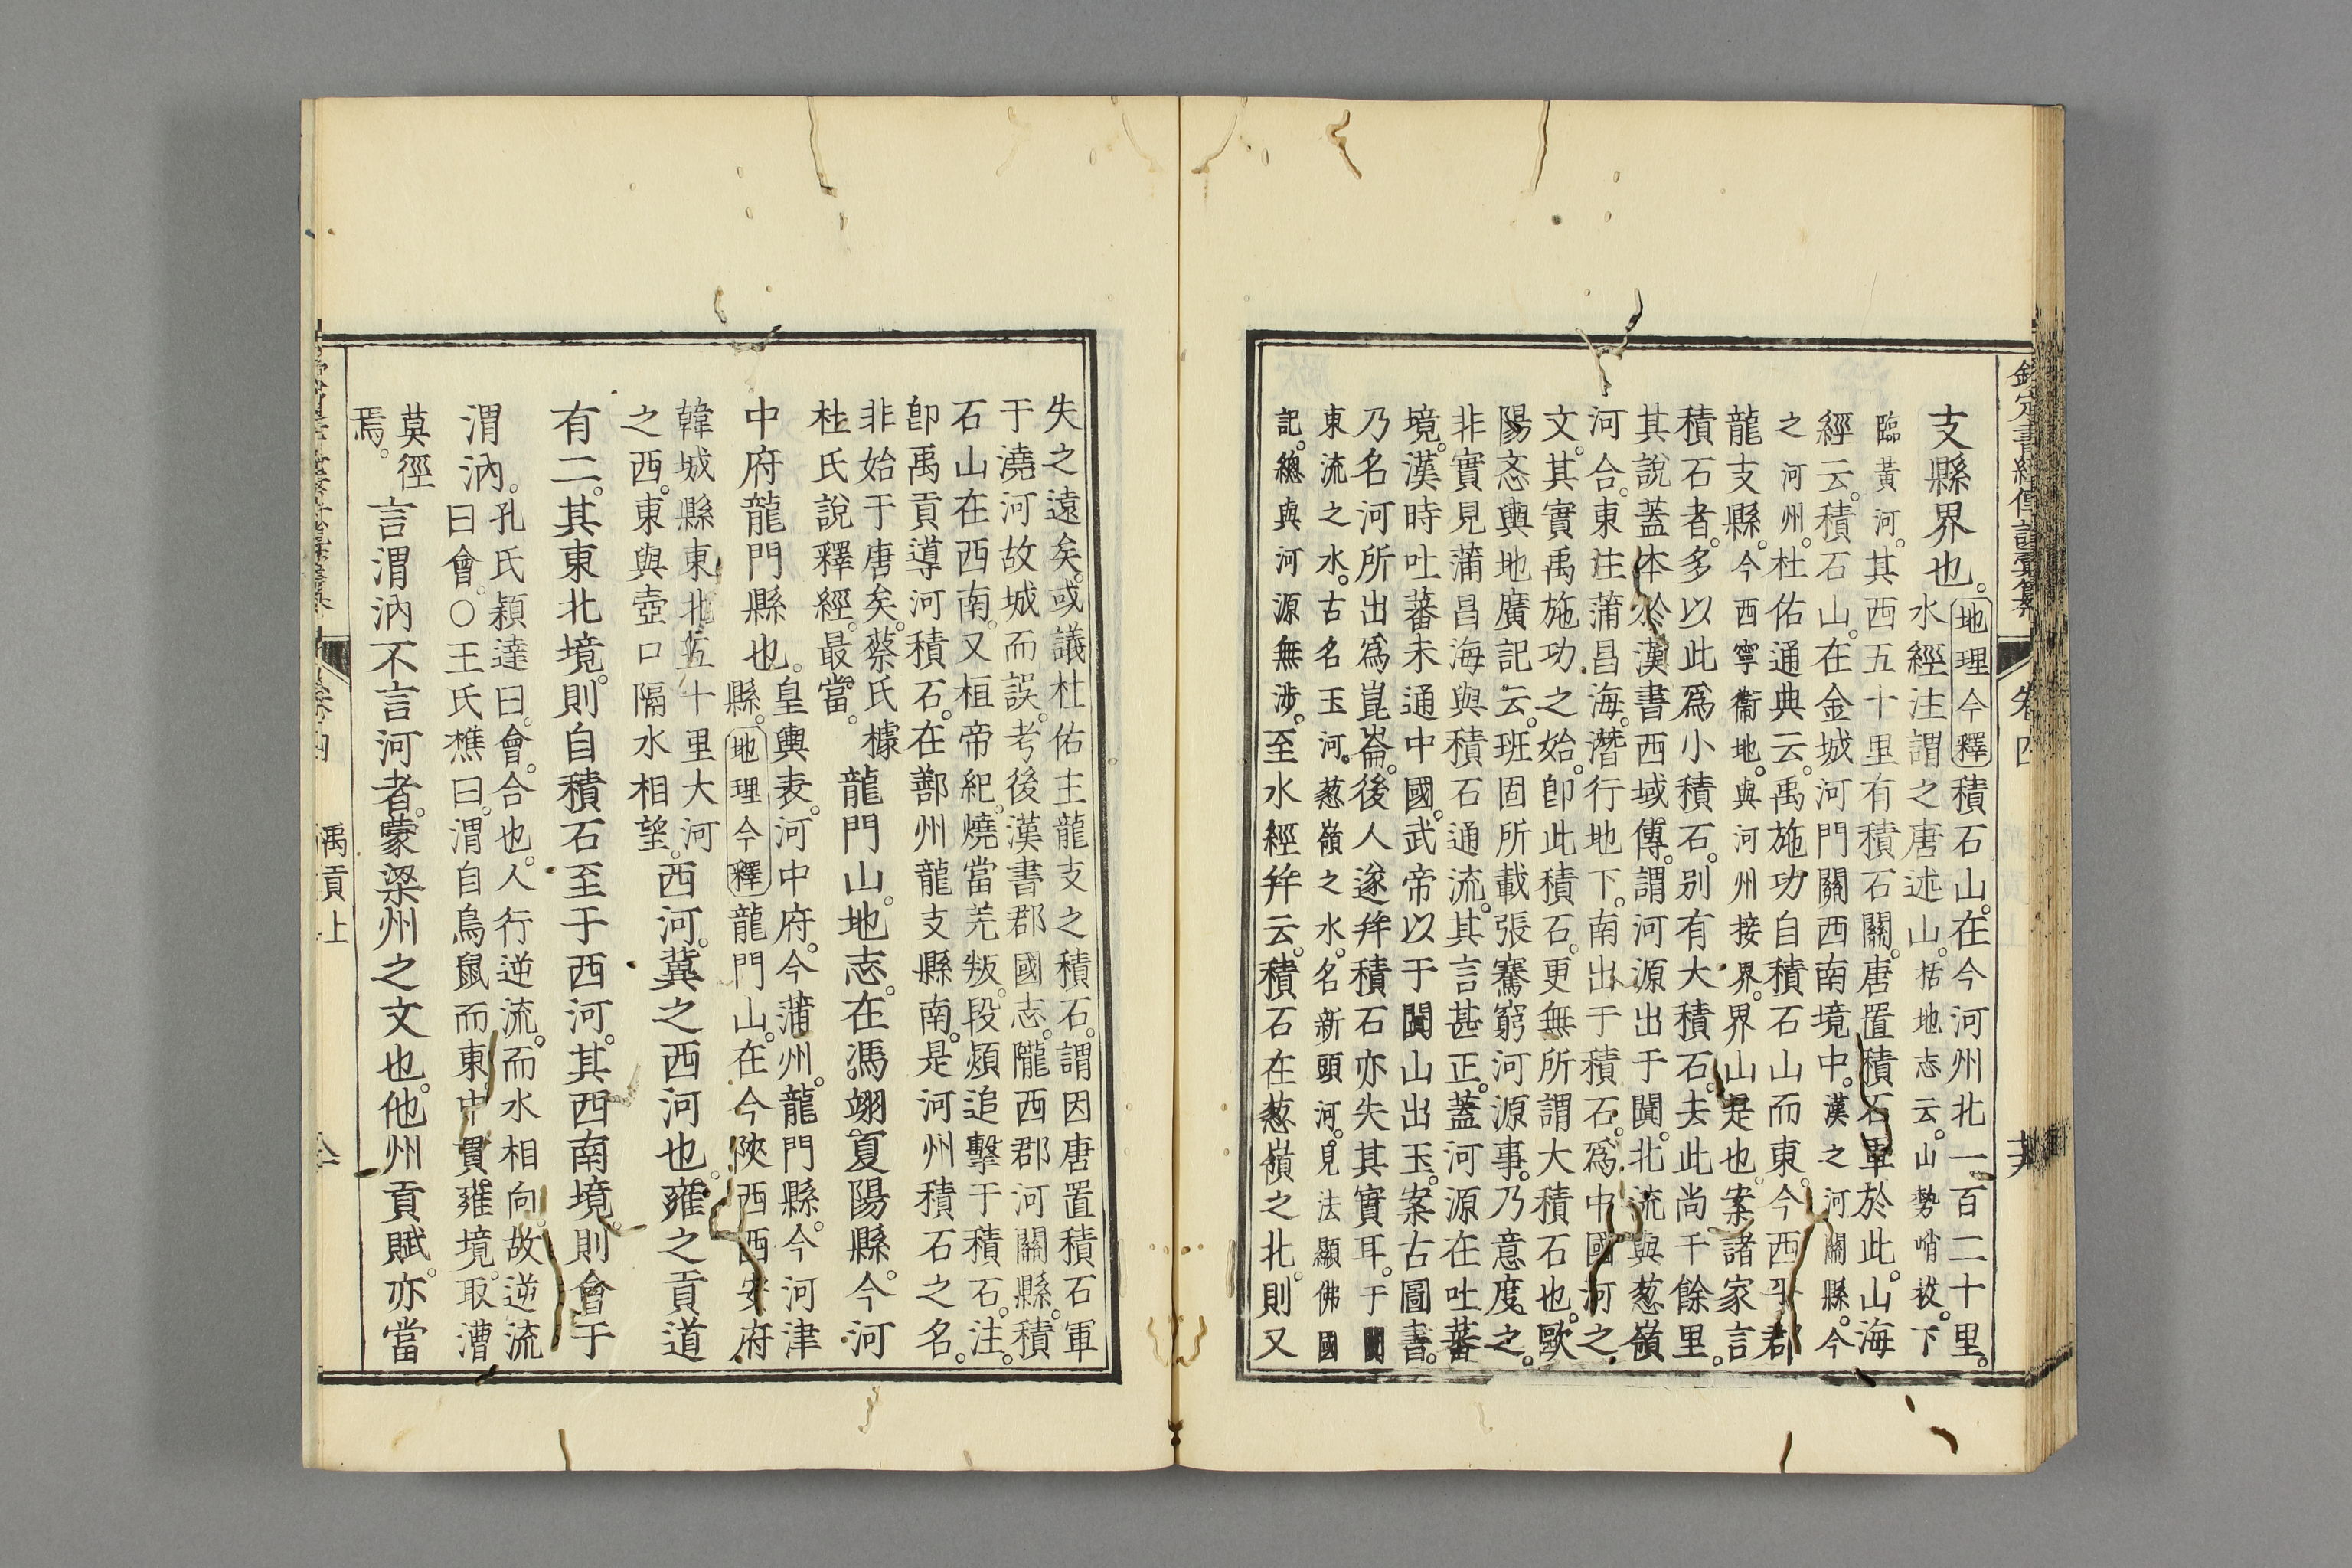 欽定書經傳說彙纂　卷四
支縣界也。地理今釋積石山。在今河州北一百二十里。
水經注謂之唐述山。括地志云。山勢峭拔。下
臨黃河。其西五十里有積石關。唐置積石軍於此。山海
經云。積石山。在金城河門關西南境中。漢之河關縣。今
之河州。杜佑通典云。禹施功自積石山而東。今西平郡
龍支縣。今西寧衞地。與河州接界。界山是也。案諸家言
積石者。多以此爲小積石。別有大積石。去此尚千餘里。
其說蓋本於漢書西域傳。謂河源出于闐。北流與葱嶺
河合。東注蒲昌海。潛行地下。南出于積石。爲中國河之
文。其實禹施功之始。卽此積石。更無所謂大積石也。歐
陽忞輿地廣記云。班固所載張騫窮河源事。乃意度之。
非實見蒲昌海與積石通流。其言甚正。蓋河源在吐蕃
境。漢時吐蕃未通中國。武帝以于闐山出玉。案古圖書。
乃名河所出爲崑崙。後人遂幷積石亦失其實耳。于闐
東流之水。古名玉河。葱嶺之水。名新頭河。見法顯佛國
記。總與河源無涉。至水經幷云。積石在葱嶺之北。則又
失之遠矣。或議杜佑主龍支之積石。謂因唐置積石軍
于澆河故城而誤。考後漢書郡國志。隴西郡河關縣。積
石山在西南。又桓帝紀。燒當羌叛。段熲追擊于積石。注。
卽禹貢導河積石。在鄯州龍支縣南。是河州積石之名。
非始于唐矣。蔡氏據
杜氏說釋經。最當。
龍門山。地志。在馮翊夏陽縣。今河
中府龍門縣也。皇輿表。河中府。今蒲州。龍門縣。今河津
縣。地理今釋龍門山。在今陝西西安府
韓城縣東北五十里大河
之西。東與壺口隔水相望。
西河。冀之西河也。雍之貢道
有二。其東北境。則自積石至于西河。其西南境。則會于
渭汭。孔氏穎達曰。會。合也。人行逆流。而水相向。故逆流
曰會。○王氏樵曰。渭自鳥鼠而東。中貫雍境。取漕
莫徑
焉。
言渭汭不言河者。蒙梁州之文也。他州貢賦。亦當
卷四　禹貢上